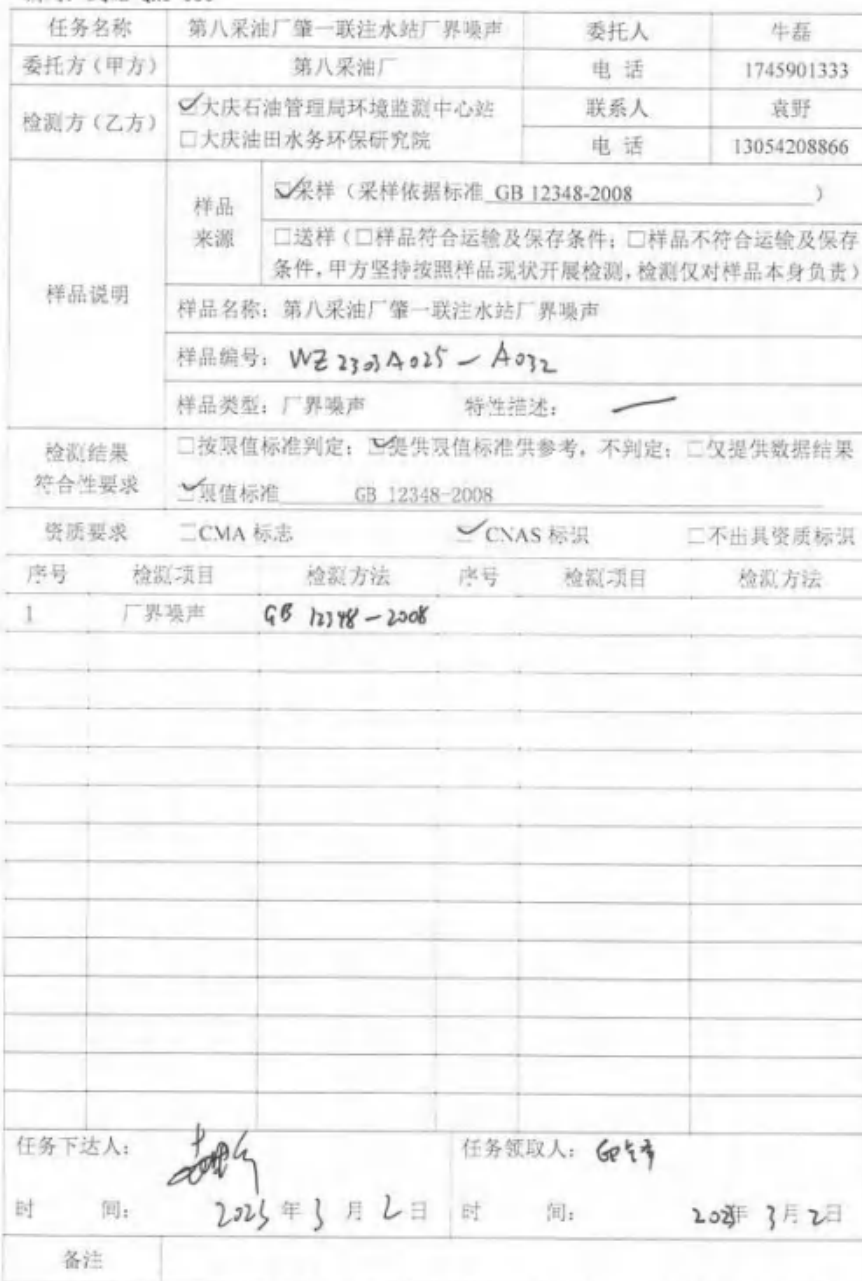 任务名称 第八采油厂肇一联注水站厂界噪声 委托人 牛磊
委托方（甲方） 第八采油厂 电 话 1745901333
检测方（乙方） ☑大庆石油管理局环境监测中心站 联系人 袁野
□大庆油田水务环保研究院 电 话 13054208866
样品说明 样品来源 ☑采样（采样依据标准 GB 12348-2008 ）
□送样（□样品符合运输及保存条件；□样品不符合运输及保存
条件，甲方坚持按照样品现状开展检测，检测仅对样品本身负责）
样品名称：第八采油厂肇一联注水站厂界噪声
样品编号：WZ2303A025－A032
样品类型：厂界噪声 特性描述：—
检测结果 □按限值标准判定；☑提供限值标准供参考，不判定；□仅提供数据结果
符合性要求 ☑限值标准 GB 12348-2008
资质要求 □CMA 标志 ☑CNAS 标识 □不出具资质标识
序号 检测项目 检测方法 序号 检测项目 检测方法
1 厂界噪声 GB 12348－2008
任务下达人： 任务领取人：
时 间： 年3月2日 时 间： 年3月2日
备注